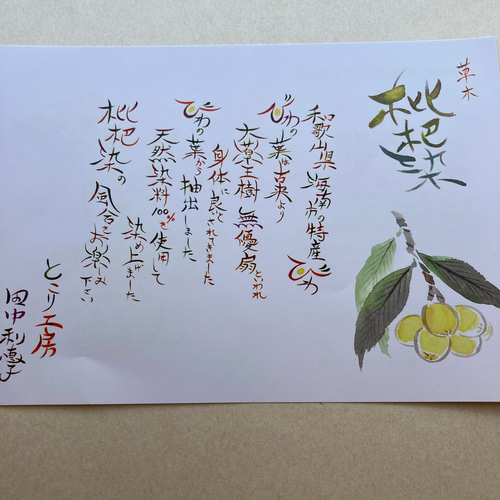 草木
枇杷染
和歌山県海南市の特産びわ
びわの葉は古来より
大薬王樹 無優扇といわれ
身体に良いとされてきました
びわの葉から抽出しました
天然染料100%を使用して
染め上げました
枇杷染の風合をお楽しみ下さい
とこり工房
田中利恵子